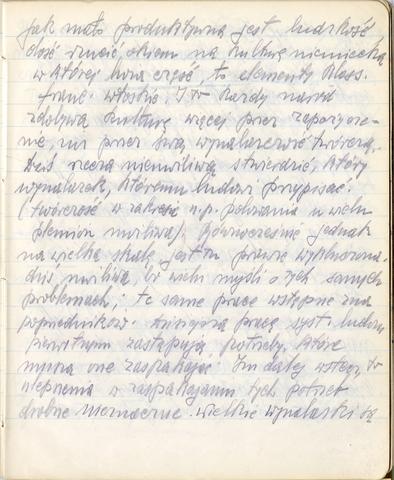 Jak mało produktywną jest ludzkość,
dość rzucić okiem na kulturę niemiecką
w której lwia część, to elementy klass.
franc. włoskie. I to każdy naród
zdobywa kulturę więcej przez zapożycze-
nie, niż przez swą wynalazczość twórczą.
Dziś rzeczą niemożliwą stwierdzić, który
wynalazek, któremu ludowi przypisać.
(twórczość w zakresie n.p. polowania u wielu
plemion możliwa). Równocześnie jednak
na wielką skalę jest to prawie wykluczona.
dziś możliwa, bo wielu myśli o tych samych
problemach, i te same prace wstępne zna
poprzedników. pracę syst. ludom
pierwotnym zastępują potrzeby, które
muszą one zaspakajać. Im dalej wstecz, to
ulepszenia w zaspakajaniu tych potrzeb
drobne nieznaczne. wielkie wynalazki są